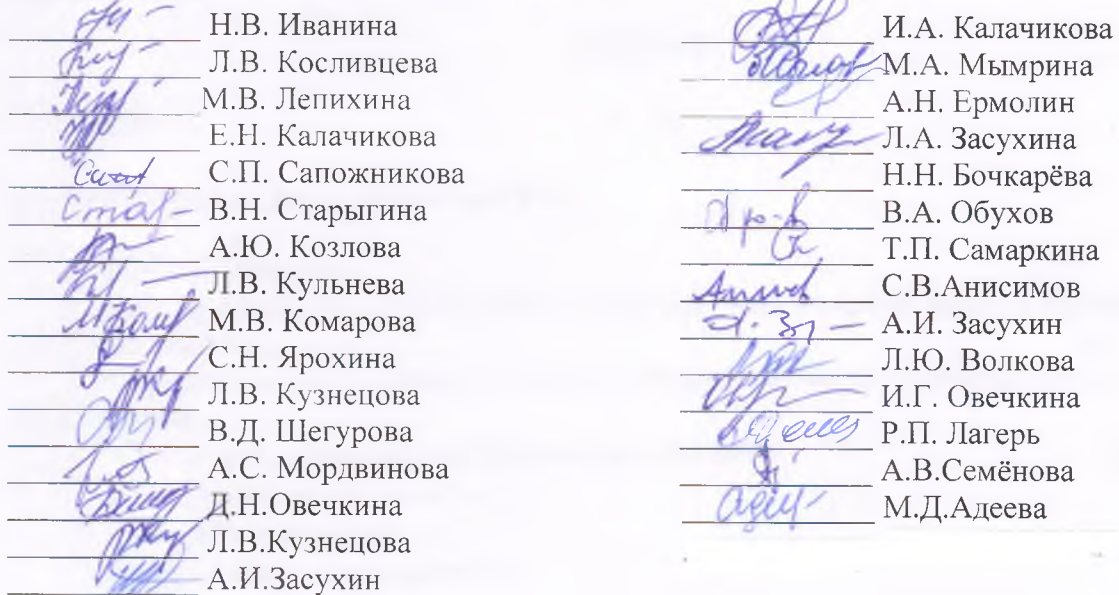 Н.В. Иванина
Л.В. Косливцева
М.В. Лепихина
Е.Н. Калачикова
С.П. Сапожникова
В.Н. Старыгина
А.Ю. Козлова
Л.В. Кульнева
М.В. Комарова
С.Н. Ярохина
Л.В. Кузнецова
В.Д. Шегурова
А.С. Мордвинова
Д.Н.Овечкина
Л.В.Кузнецова
А.И.Засухин
И.А. Калачикова
М.А. Мымрина
А.Н. Ермолин
Л.А. Засухина
Н.Н. Бочкарёва
В.А. Обухов
Т.П. Самаркина
С.В.Анисимов
А.И. Засухин
Л.Ю. Волкова
И.Г. Овечкина
Р.П. Лагерь
А.В.Семёнова
М.Д.Адеева